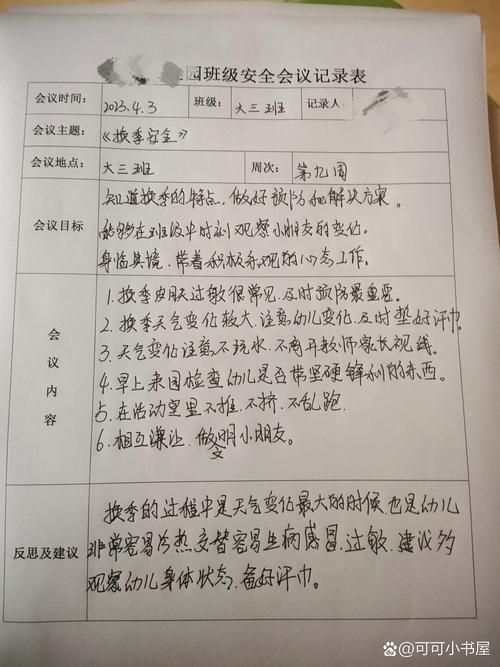 园班级安全会议记录表
会议时间： 2023.4.3 班级： 大三班 记录人
会议主题： 《换季安全》
会议地点： 大三班 周次： 第九周
会议目标
知道换季的特点，做好预防和解决方案。
能够在班级平时刻观察小朋友的变化。
身临其境，带着积极乐观的心态工作。
会议内容
1.换季皮肤过敏很常见，及时预防最重要。
2.换季天气变化较大，注意幼儿变化，及时垫好汗巾。
3.天气变化注意不玩水，不离开教师家长视线。
4.早上来园检查幼儿是否带坚硬锋利的东西。
5.在活动室里不推，不挤，不乱跑.
6.相互谦让，做文明小朋友。
反思及建议
换季的过程中是天气变化最大的时候，也是幼儿
非常容易冷热交替容易生病感冒，过敏，建议多
观察幼儿身体状态，备好汗巾。
@可可小书屋